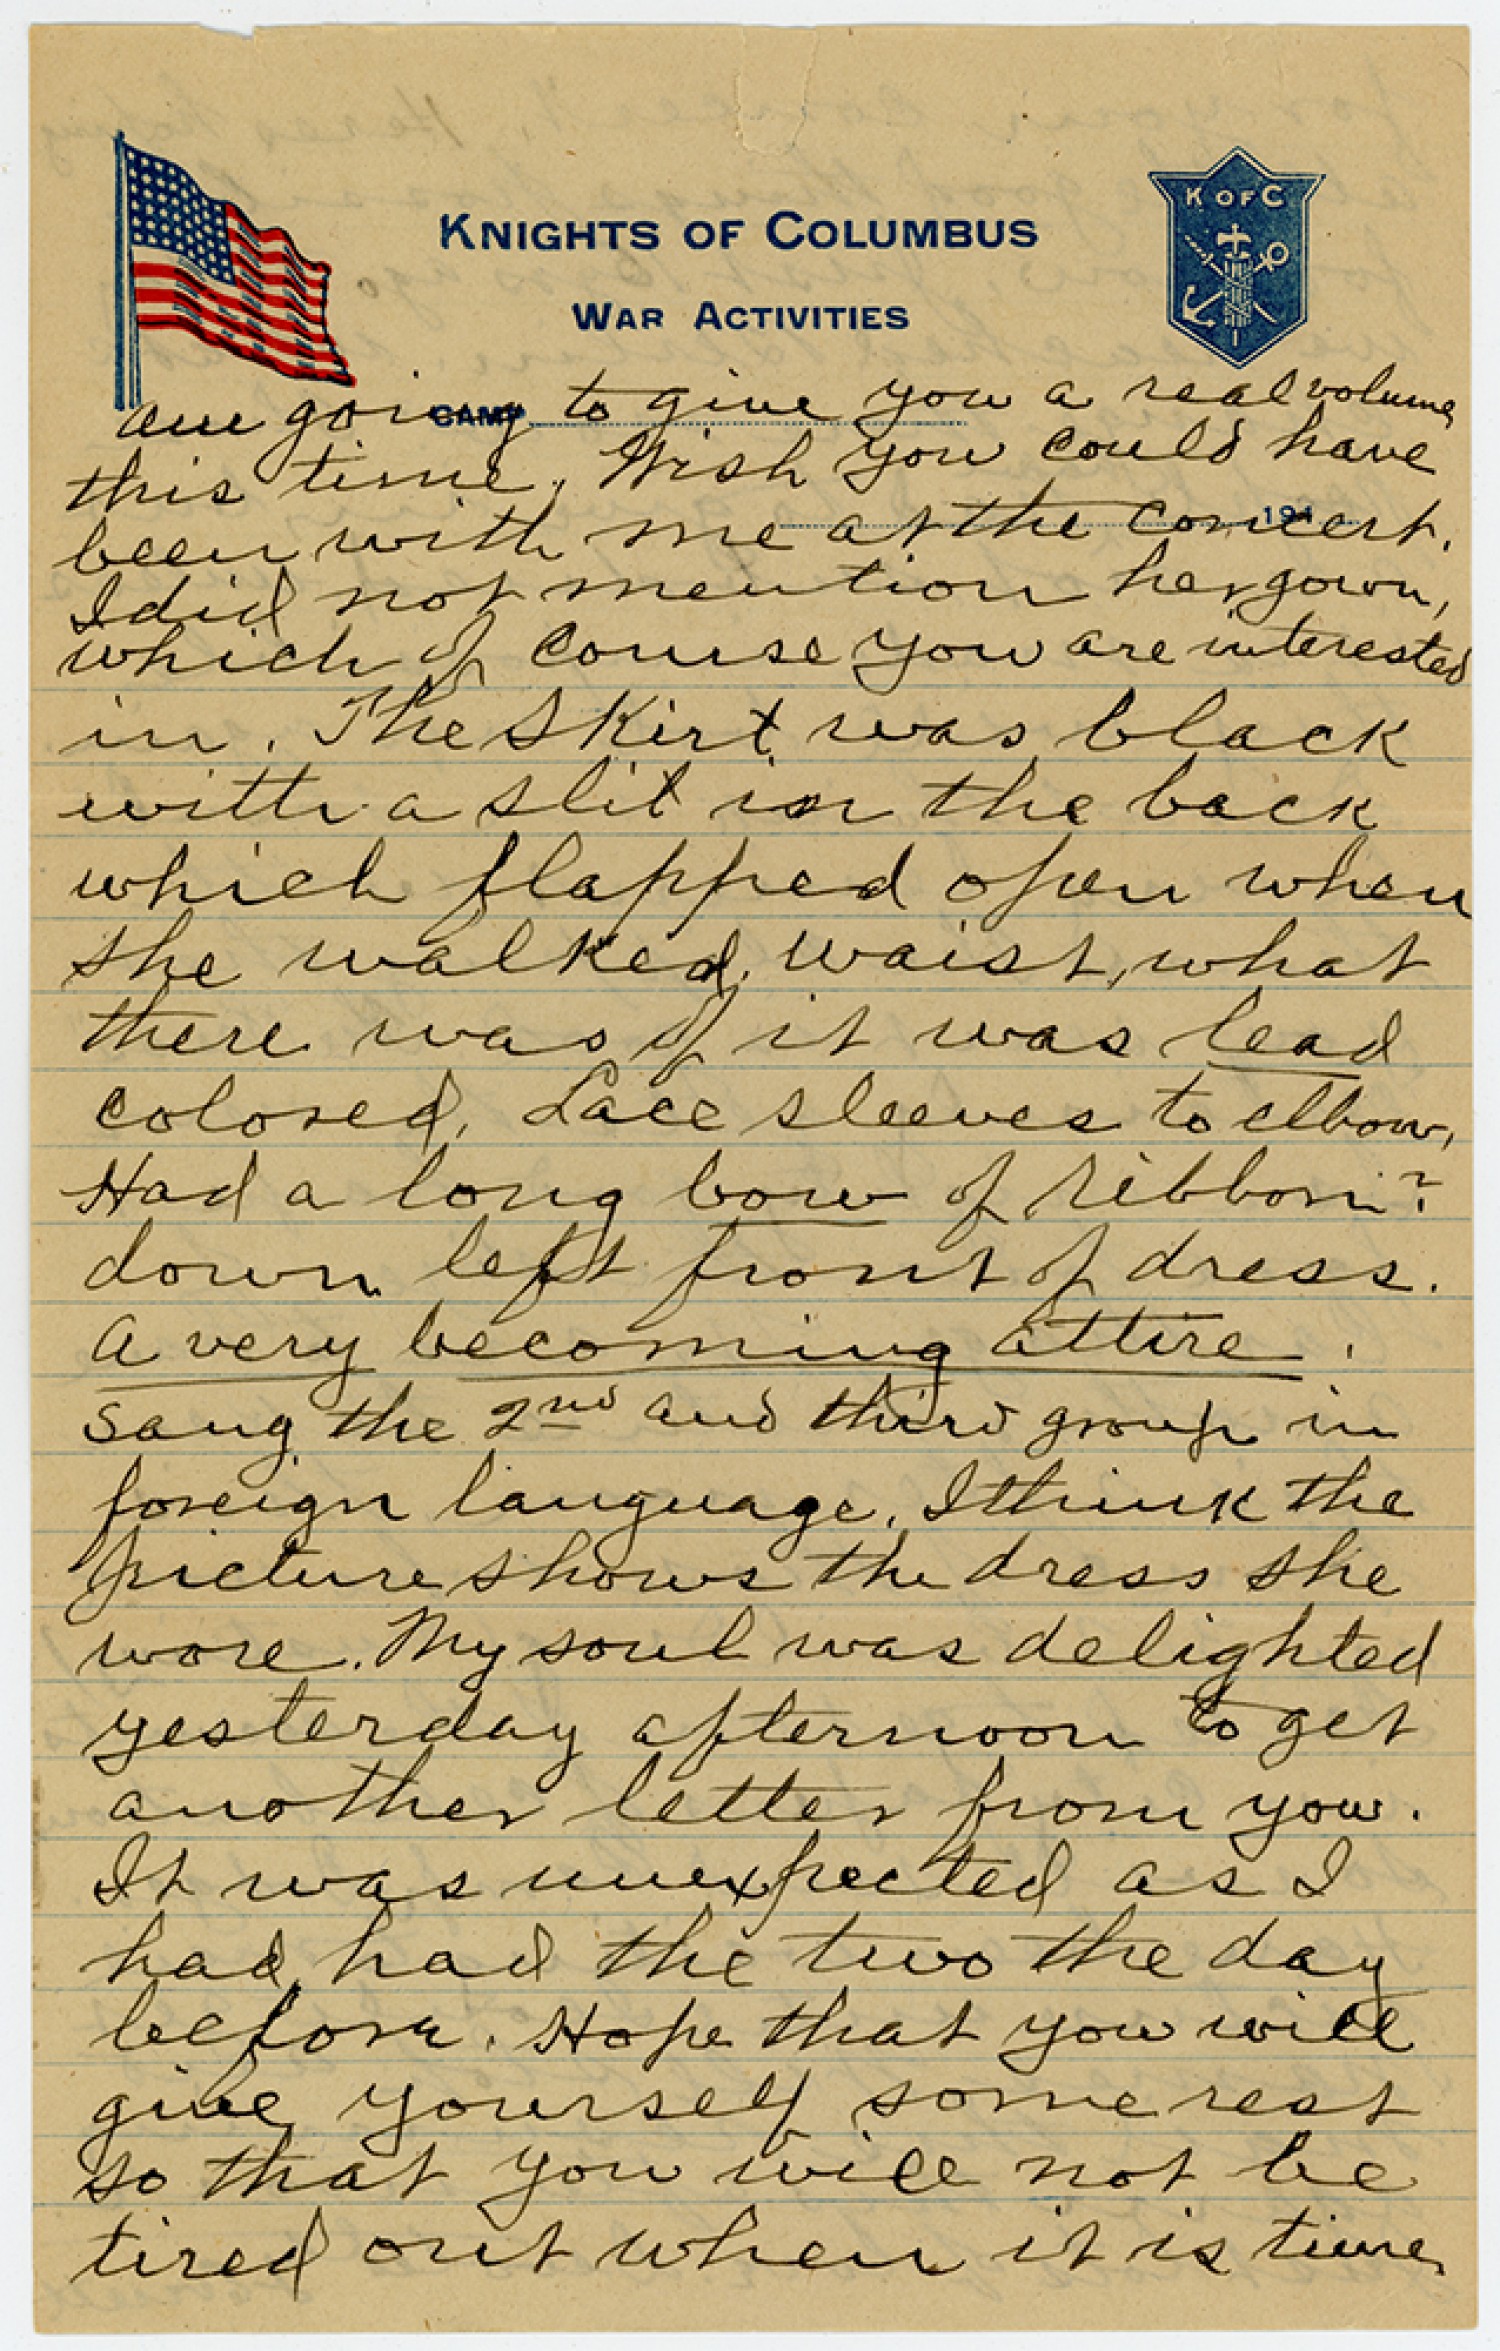 K OF C
KNIGHTS OF COLUMBUS
WAR ACTIVITIES
CAMP
am going to give you a real volume
this time. Wish you could have
191
been with me at the concert.
I did not mention her gown,
which of course you are interested
in. The skirt was black
with a slit in the back
which flapped open when
she walked. Waist, what
there was of it was lead
colored. Lace sleeves to elbow.
Had a long bow of ribbon?
down left front of dress.
A very becoming attire.
Sang the 2nd and third group in
foreign language. I think the
picture shows the dress she
wore. My soul was delighted
yesterday afternoon to get
another letter from you.
It was unexpected as I
had had the two the day
before. Hope that you will
give yourself some rest
so that you will not be
tired out when it is time